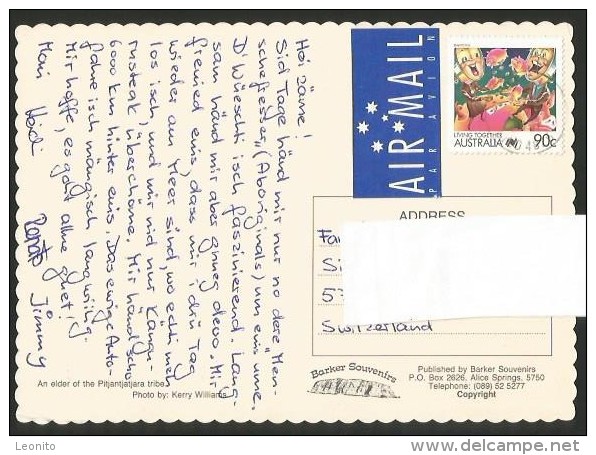 Hoi zäme!
Sid Tage händ mir nur no dere "Men-
schefresser" (Aboriginals) um eus ume.
D'Wüescht isch faszinierend. Lang-
sam händ mir aber gnueg devo. Mir
freued eus, dass mir i drü Tag
wieder am Meer sind, wo echli meh
los isch, und mir nid nur Kängu-
rusteak überchöme. Mir händ scho
6000 km hinter eus. Das ewige Auto-
fahre isch mängisch langwiilig.
Mir hoffe, es gaht allne guet!
Heidi Renato Jimmy
AIR MAIL
PAR AVION
LIVING TOGETHER
AUSTRALIA 90c
ADDRESS
Fa
Si
57
Switzerland
An elder of the Pitjantjatjara tribe.
Photo by: Kerry Williams
Barker Souvenirs
Published by Barker Souvenirs
P.O. Box 2626, Alice Springs, 5750
Telephone: (089) 52 5277
Copyright
Leonito
www.delcampe.net